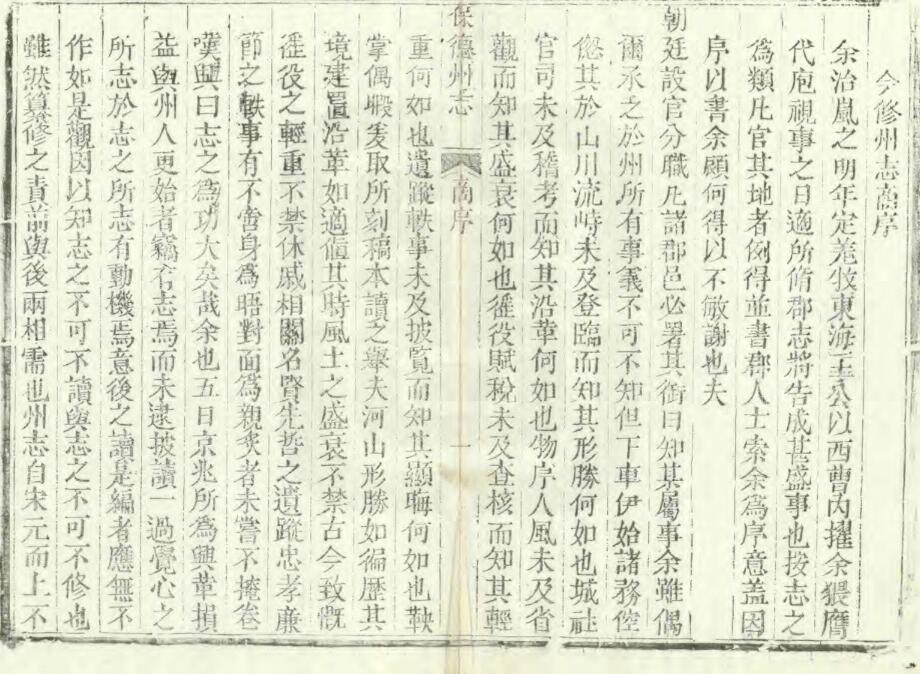 今修州志高序
余治嵐之明年定羗牧東海王公以西曹内擢余猥膺
代庖視事之日適所脩郡志將告成甚盛事也按志之
為類凡官其地者例得並書郡人士索余為序意盖因
序以書余顧何得以不敏謝也夫
朝廷設官分職凡諸郡邑必署其銜曰知某屬事余雖偶
爾承之於州所有事義不可不知但下車伊始諸務倥
偬其於山川流峙未及登臨而知其形勝何如也城社
官司未及稽考而知其沿革何如也物序人風未及省
觀而知其盛衰何如也徭役賦稅未及查核而知其輕
保德州志 高序 一
重何如也遺蹤軼事未及披覧而知其顯晦何如也鞅
掌偶暇爰取所刻稿本讀之舉夫河山形勝如徧歴其
境建置沿革如適値其時風土之盛衰不禁古今致慨
徭役之輕重不禁休戚相關名賢先哲之遺蹤忠孝廉
節之軼事有不啻身為晤對面為親炙者未嘗不掩卷
嘆興曰志之為功大矣哉余也五日京兆所為興革損
益與州人更始者竊有志焉而未逮披讀一過覺心之
所志於志之所志有動機焉意後之讀是編者應無不
作如是觀因以知志之不可不讀與志之不可不修也
雖然纂修之責前與後兩相需也州志自宋元而上不